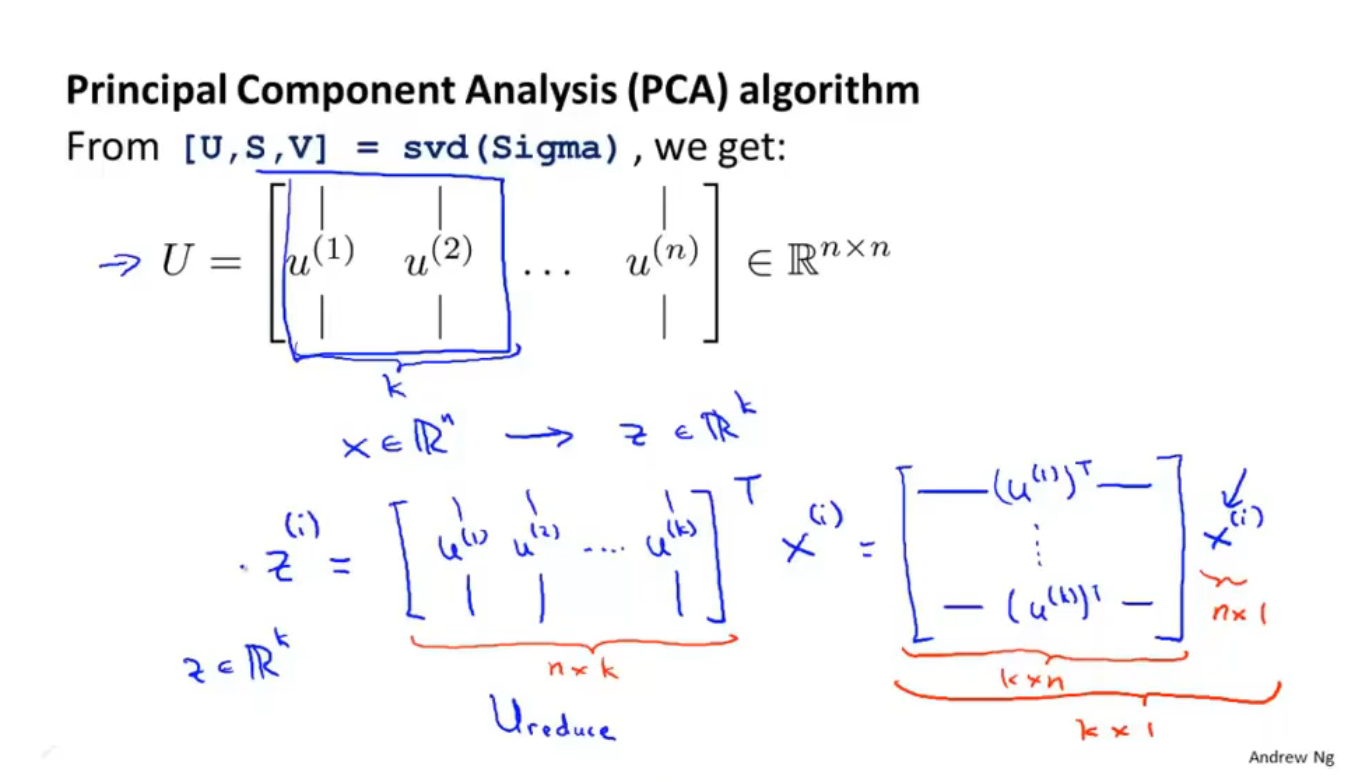 Principal Component Analysis (PCA) algorithm
From [U,S,V] = svd(Sigma) , we get:
→ U = [ | | | u⁽¹⁾ u⁽²⁾ … u⁽ⁿ⁾ | | | ] ∈ ℝⁿˣⁿ
k
x ∈ ℝⁿ → z ∈ ℝᵏ
z⁽ⁱ⁾ = [ u⁽¹⁾ u⁽²⁾ .... u⁽ᵏ⁾ ]ᵀ x⁽ⁱ⁾ = [ —(u⁽¹⁾)ᵀ— ⋮ —(u⁽ᵏ⁾)ᵀ— ] x⁽ⁱ⁾
n×1
z ∈ ℝᵏ
n×k
k×n
Ureduce
k×1
Andrew Ng